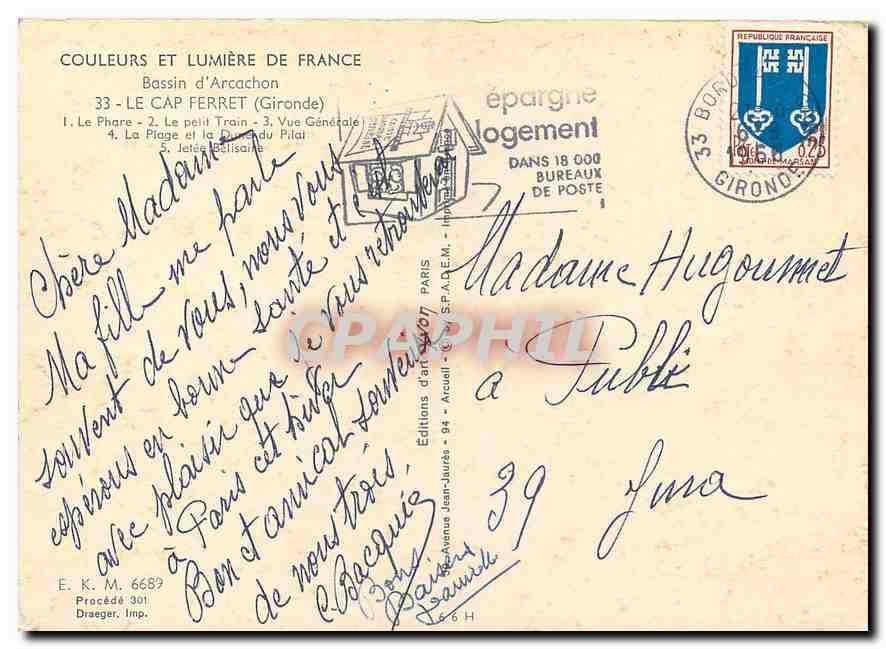 COULEURS ET LUMIÈRE DE FRANCE
Bassin d'Arcachon
33 - LE CAP FERRET (Gironde)
1. Le Phare - 2. Le petit Train - 3. Vue Générale
4. La Plage et la Dune du Pilat
5. Jetée Bélisaire
Chère Madame
Ma fille me parle
souvent de vous, nous vous
espérons en bonne santé et c'est
avec plaisir que je vous retrouverai
à Paris cet hiver
Bon et amical souvenir
de nous trois.
C. Bacquié
Bons
Baisers
E. K. M. 6689
Procédé 301
Draeger, Imp.
66 H
Éditions d'art yvon PARIS
Avenue Jean-Jaurès - 94 - Arcueil - S.P.A.D.E.M. - Imprimé en
épargne
logement
DANS 18 000
BUREAUX
DE POSTE
33 BORD
GIRONDE
REPUBLIQUE FRANÇAISE
0,25
MONT-DE-MARSAN
Madame Hugonnet
à Publi
39 Jura
CPAPHIL